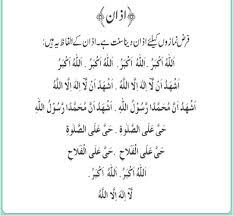 ﴿اذان﴾
فرض نمازوں کیلئے اذان دینا سنت ہے۔ اذان کے الفاظ یہ ہیں:
اَللّٰهُ اَكْبَرُ . اَللّٰهُ اَكْبَرُ . اَللّٰهُ اَكْبَرُ . اَللّٰهُ اَكْبَرُ
اَشْهَدُ اَنْ لَّا اِلٰهَ اِلَّا اللّٰهُ
اَشْهَدُ اَنْ لَّا اِلٰهَ اِلَّا اللّٰهُ
اَشْهَدُ اَنَّ مُحَمَّدًا رَّسُوْلُ اللّٰهِ
اَشْهَدُ اَنَّ مُحَمَّدًا رَّسُوْلُ اللّٰهِ
حَیَّ عَلَی الصَّلٰوةِ . حَیَّ عَلَی الصَّلٰوةِ
حَیَّ عَلَی الْفَلَاحِ . حَیَّ عَلَی الْفَلَاحِ
اَللّٰهُ اَكْبَرُ . اَللّٰهُ اَكْبَرُ
لَا اِلٰهَ اِلَّا اللّٰهُ